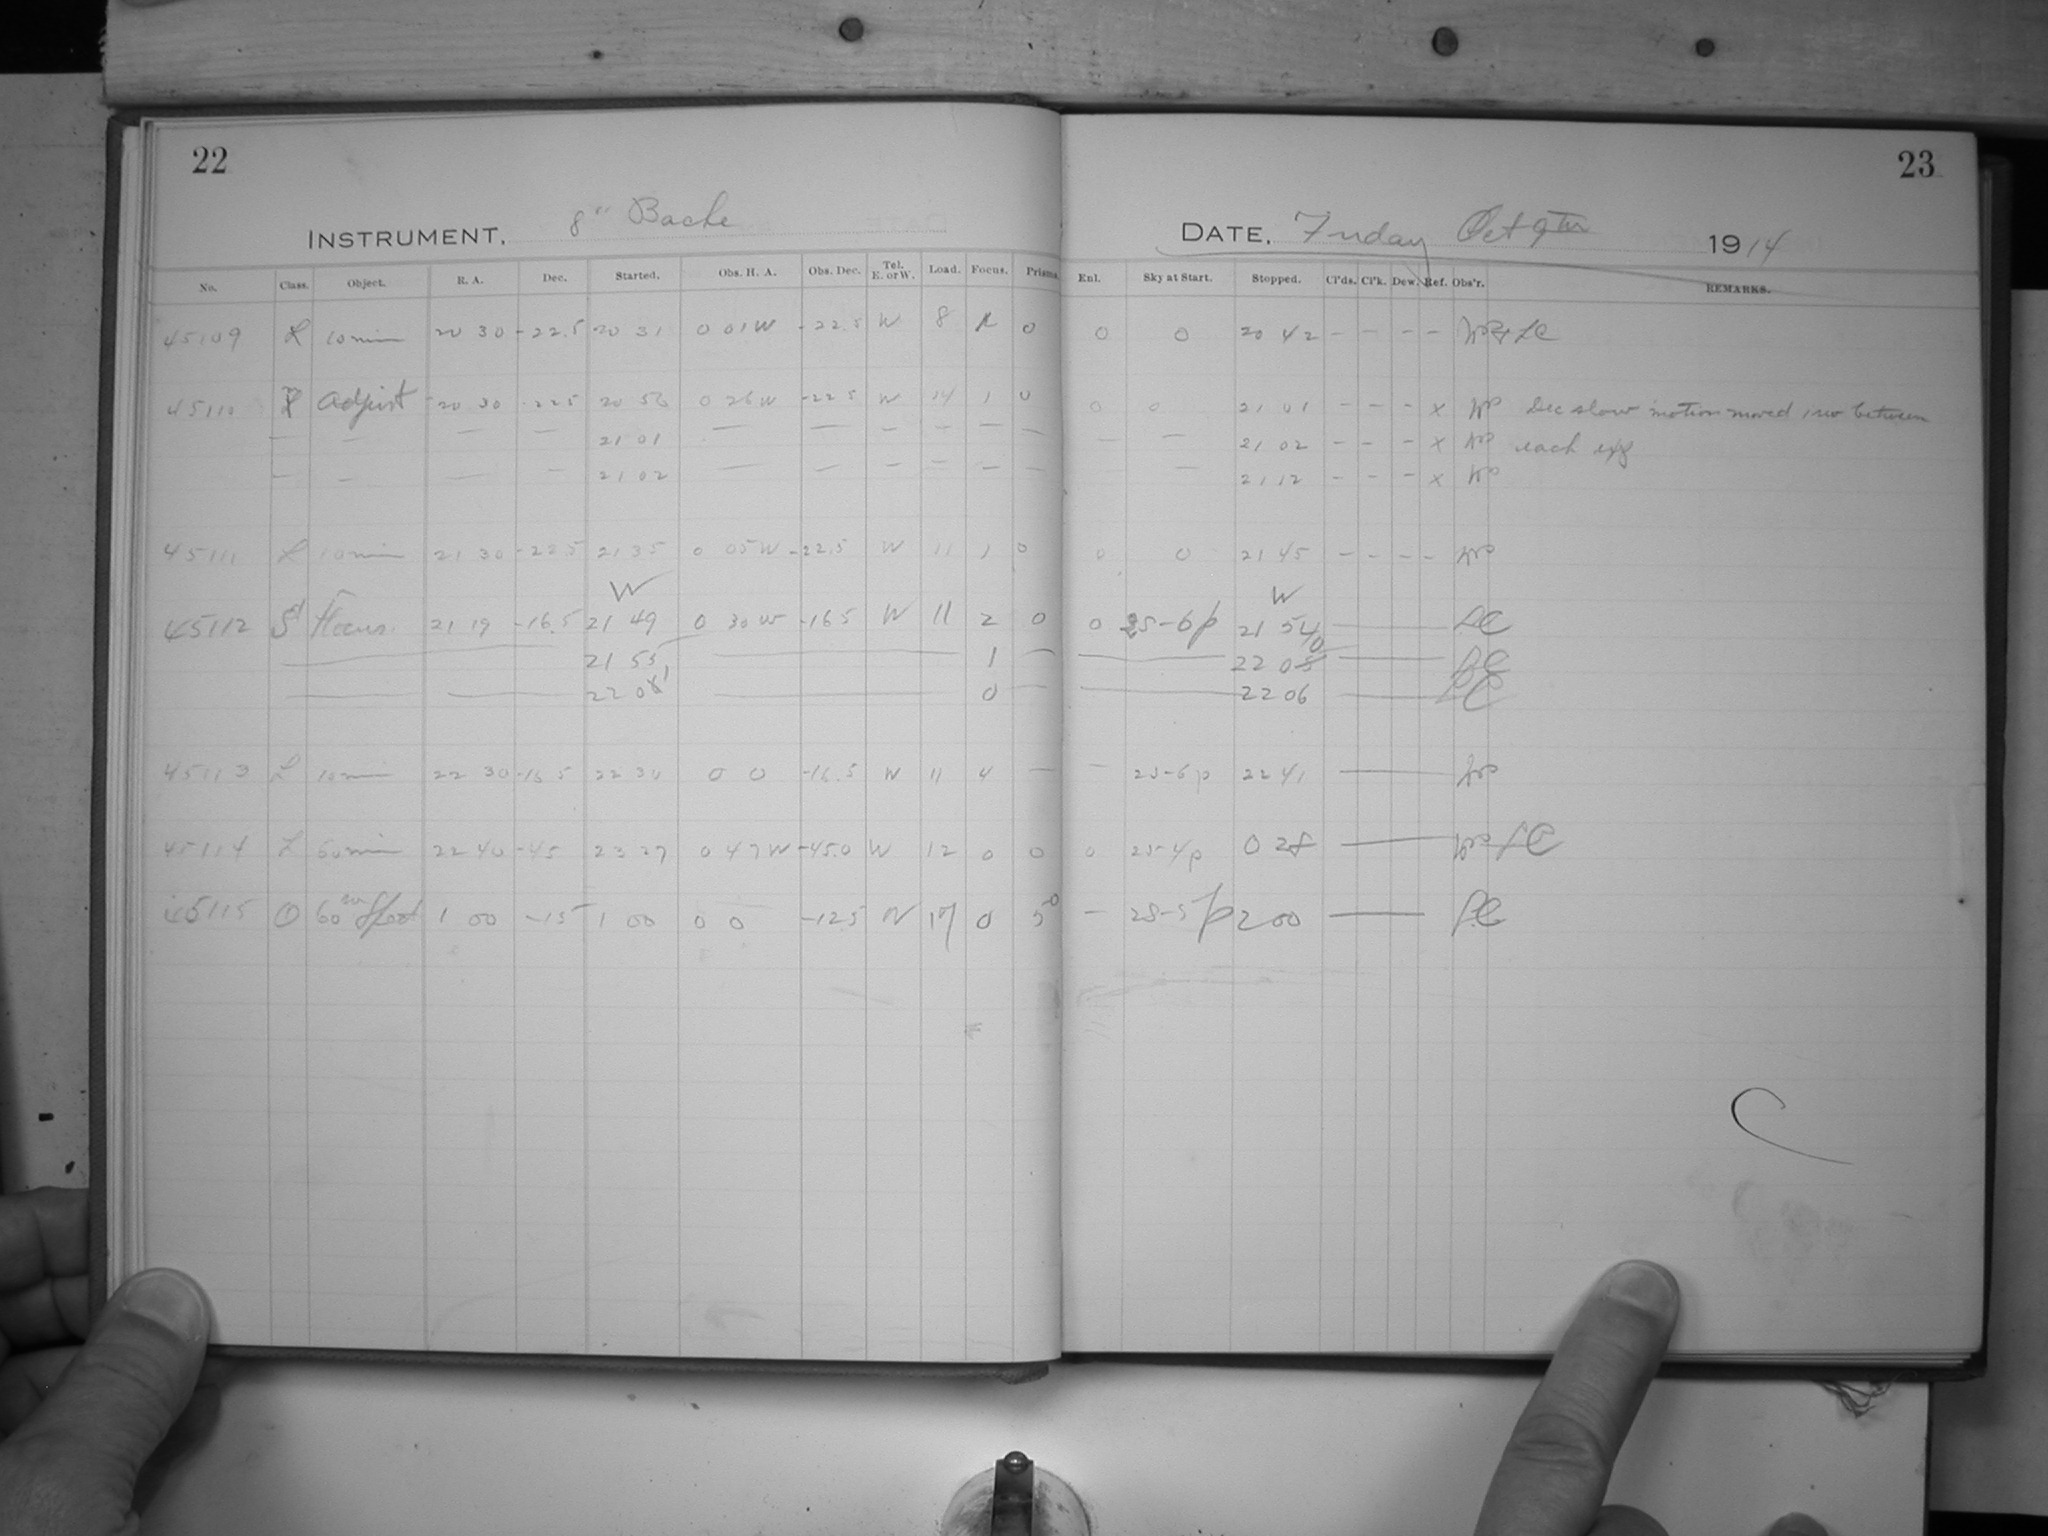 22
23
INSTRUMENT, 8" Bache
DATE, Friday Oct 9th 1914
No. Class. Object. R. A. Dec. Started. Obs. H. A. Obs. Dec. Tel. E. or W. Load. Focus. Prisms. Enl. Sky at Start. Stopped. Cl'ds. Cl'k. Dew. Ref. Obs'r. REMARKS.
45109 L 10 min 20 30 -22.5 20 31 0 01 W -22.5 W 8 0 0 0 20 42 - - - -
45110 Adjust 20 30 -22.5 20 56 0 26 W -22.5 W 14 1 0 0 0 21 01 - - - x Dec slow motion moved between
— — — — 21 01 — — — — — — — — 21 02 - - - x each exp
— — — — 21 02 — — — — — — — 21 12 - - - x
45111 L 10 min 21 30 -22.5 21 35 0 05 W -22.5 W 11 1 0 0 0 21 45 - - - -
W W
45112 S Focus 21 19 -16.5 21 49 0 30 W -16.5 W 11 2 0 0 25-6p 21 54 LC
21 55 1 22 LC
22 0 22 06 LC
45113 L 10 min 22 30 -16.5 22 30 0 0 -16.5 W 11 4 — — 25-6p 22 41
45114 L 60 min 22 40 -45 23 27 0 47 W -45.0 W 12 0 0 0 25-4p 0 28 LC
45115 O 60 m 1 00 -15 1 00 0 0 -12.5 W 17 0 5° — 28-5p 2 00 LC